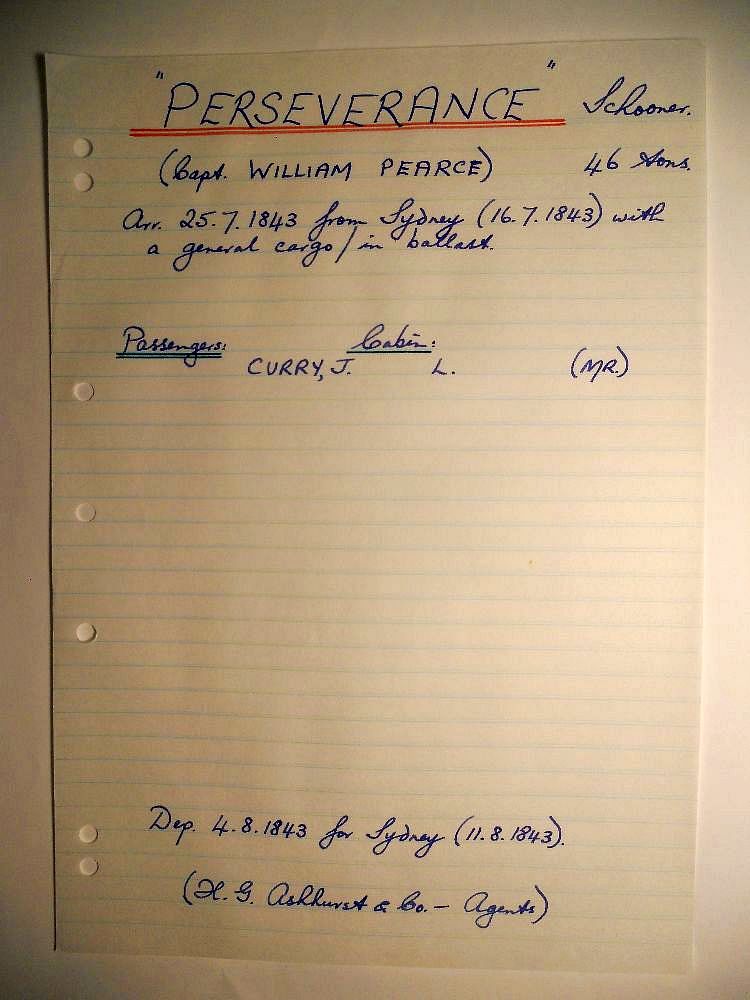 "PERSEVERANCE" Schooner.
(Capt. WILLIAM PEARCE) 46 tons.
Arr. 25.7.1843 from Sydney (16.7.1843) with
a general cargo/in ballast.
Passengers: Cabin:
CURRY, J. L. (MR.)
Dep. 4.8.1843 for Sydney (11.8.1843).
(H. G. Ashhurst & Co. — Agents)